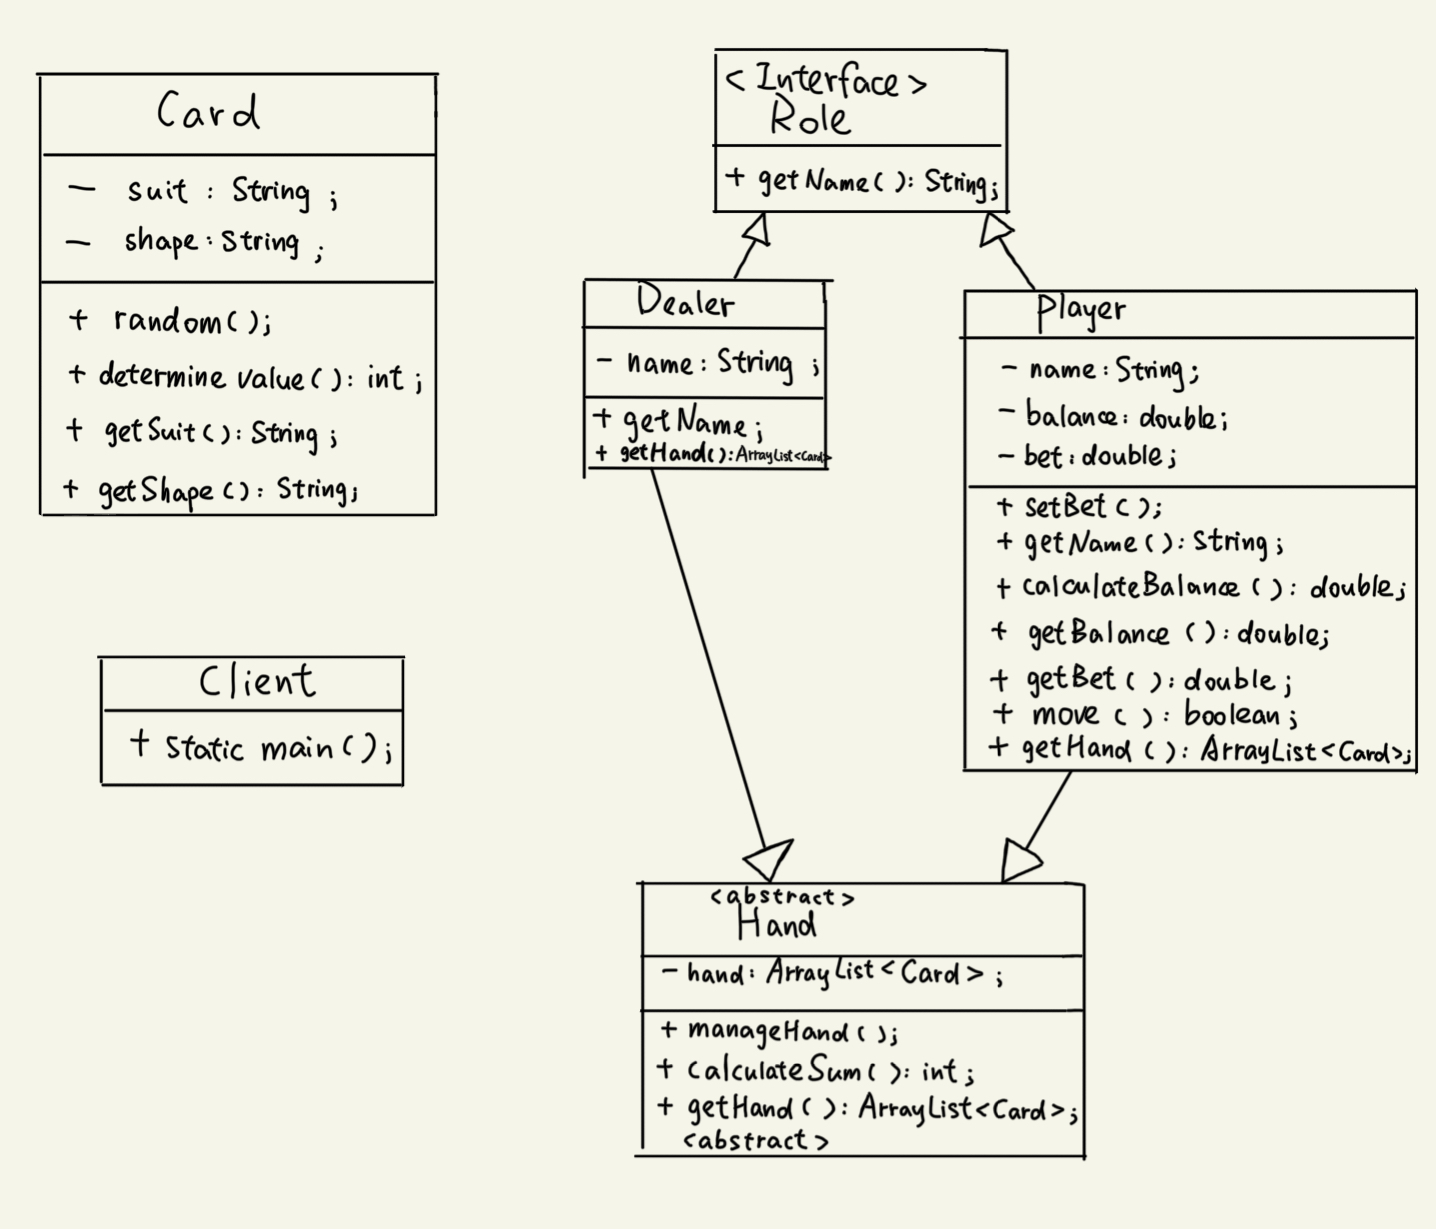 Card
- suit : String ;
- shape : String ;
+ random();
+ determine value(): int ;
+ getSuit(): String ;
+ getShape(): String;
<Interface>
Role
+ getName(): String;
Dealer
- name : String ;
+ getName ;
+ getHand(): ArrayList<Card>
Player
- name : String ;
- balance : double ;
- bet : double ;
+ setBet();
+ getName(): String ;
+ calculateBalance(): double ;
+ getBalance(): double ;
+ getBet(): double ;
+ move(): boolean ;
+ getHand(): ArrayList<Card>;
Client
+ static main();
<abstract>
Hand
- hand : ArrayList<Card> ;
+ manageHand();
+ calculateSum(): int ;
+ getHand(): ArrayList<Card>;
<abstract>